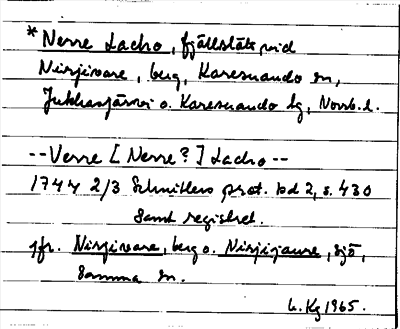 * Nerre Lacho, fjällslätt vid
Nirjivare, berg, Karesuando sn,
Jukkasjärvi o. Karesuando tg, Norrb. l.
-- Verre [Nerre?] Lacho --
1744 2/3 Schnitlers prot. bd 2, s. 430
samt registret.
jfr. Nirjivare, berg o. Nirjijaure, sjö,
samma sn.
L. Kg 1965.